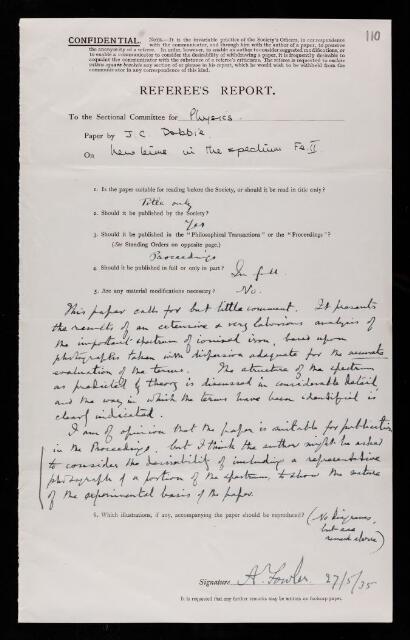 110
CONFIDENTIAL. NOTE.—It is the invariable practice of the Society's Officers, in correspondence
with the communicator, and through him with the author of a paper, to preserve
the anonymity of a referee. In order, however, to enable an author to consider suggested modifications, or
to enable a communicator to consider the desirability of withdrawing a paper, it is frequently desirable to
acquaint the communicator with the substance of a referee's criticisms. The referee is requested to enclose
within square brackets any section of or phrase in his report, which he would wish to be withheld from the
communicator in any correspondence of this kind.
REFEREE'S REPORT.
To the Sectional Committee for Physics.
Paper by J. C. Dobbie.
On New lines in the spectrum Fe II
1. Is the paper suitable for reading before the Society, or should it be read in title only?
Title only
2. Should it be published by the Society?
Yes
3. Should it be published in the "Philosophical Transactions" or the "Proceedings"?
(See Standing Orders on opposite page.)
Proceedings
4. Should it be published in full or only in part? In full
5. Are any material modifications necessary? No.
This paper calls for but little comment. It presents
the results of an extensive & very laborious analysis of
the important spectrum of ionised iron, based upon
photographs taken with dispersion adequate for the accurate
evaluation of the terms. The structure of the spectrum
as predicted by theory is discussed in considerable detail,
and the way in which the terms have been identified is
clearly indicated.
I am of opinion that the paper is suitable for publication
in the Proceedings, but I think the author might be asked
to consider the desirability of including a representative
photograph of a portion of the spectrum, to show the nature
of the experimental basis of the paper.
6. Which illustrations, if any, accompanying the paper should be reproduced? (No diagrams,
but see
remark above)
Signature A. Fowler 27/5/35
It is requested that any further remarks may be written on foolscap paper.